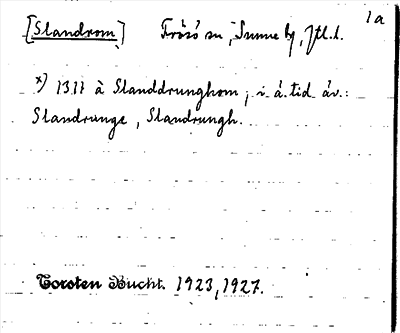 [Slandrom] Frösö sn, Sunne tg, Jtl. l. 1a
x) 1311 à Slanddrunghom; i á. tid áv.:
Slandrunge, Slandrungh.
Torsten Bucht. 1923, 1927.